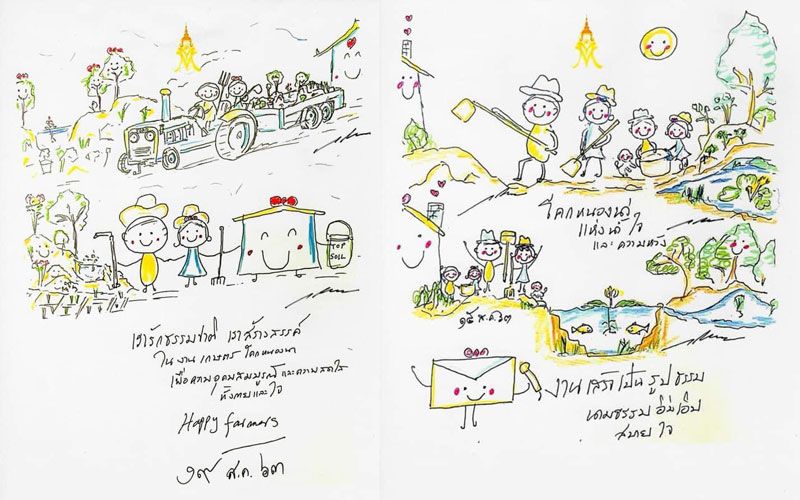 TOP
SOIL
เรารักธรรมชาติ เราสร้างสรรค์
ในงานเกษตร โคกหนองนา
เพื่อความอุดมสมบูรณ์และความสดใส
ทั้งกายและใจ
Happy farmers
๑๙ ส.ค. ๖๓
โคกหนองนา
แห่งน้ำใจ
และความหวัง
๑๕ ส.ค. ๖๓
งานเสร็จเป็นรูปธรรม
นามธรรม อิ่มเอิบ
สบายใจ